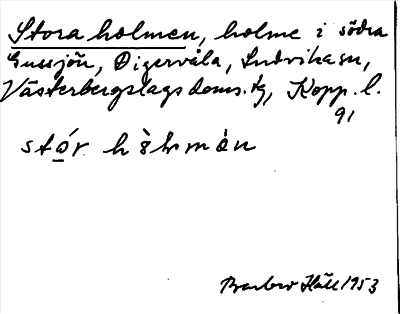 Stora holmen, holme i södra
Gussjön, Digervåla, Ludvika sn,
Västerbergslags doms.tg, Kopp. l.
91
stór
Barbro Häll 1953